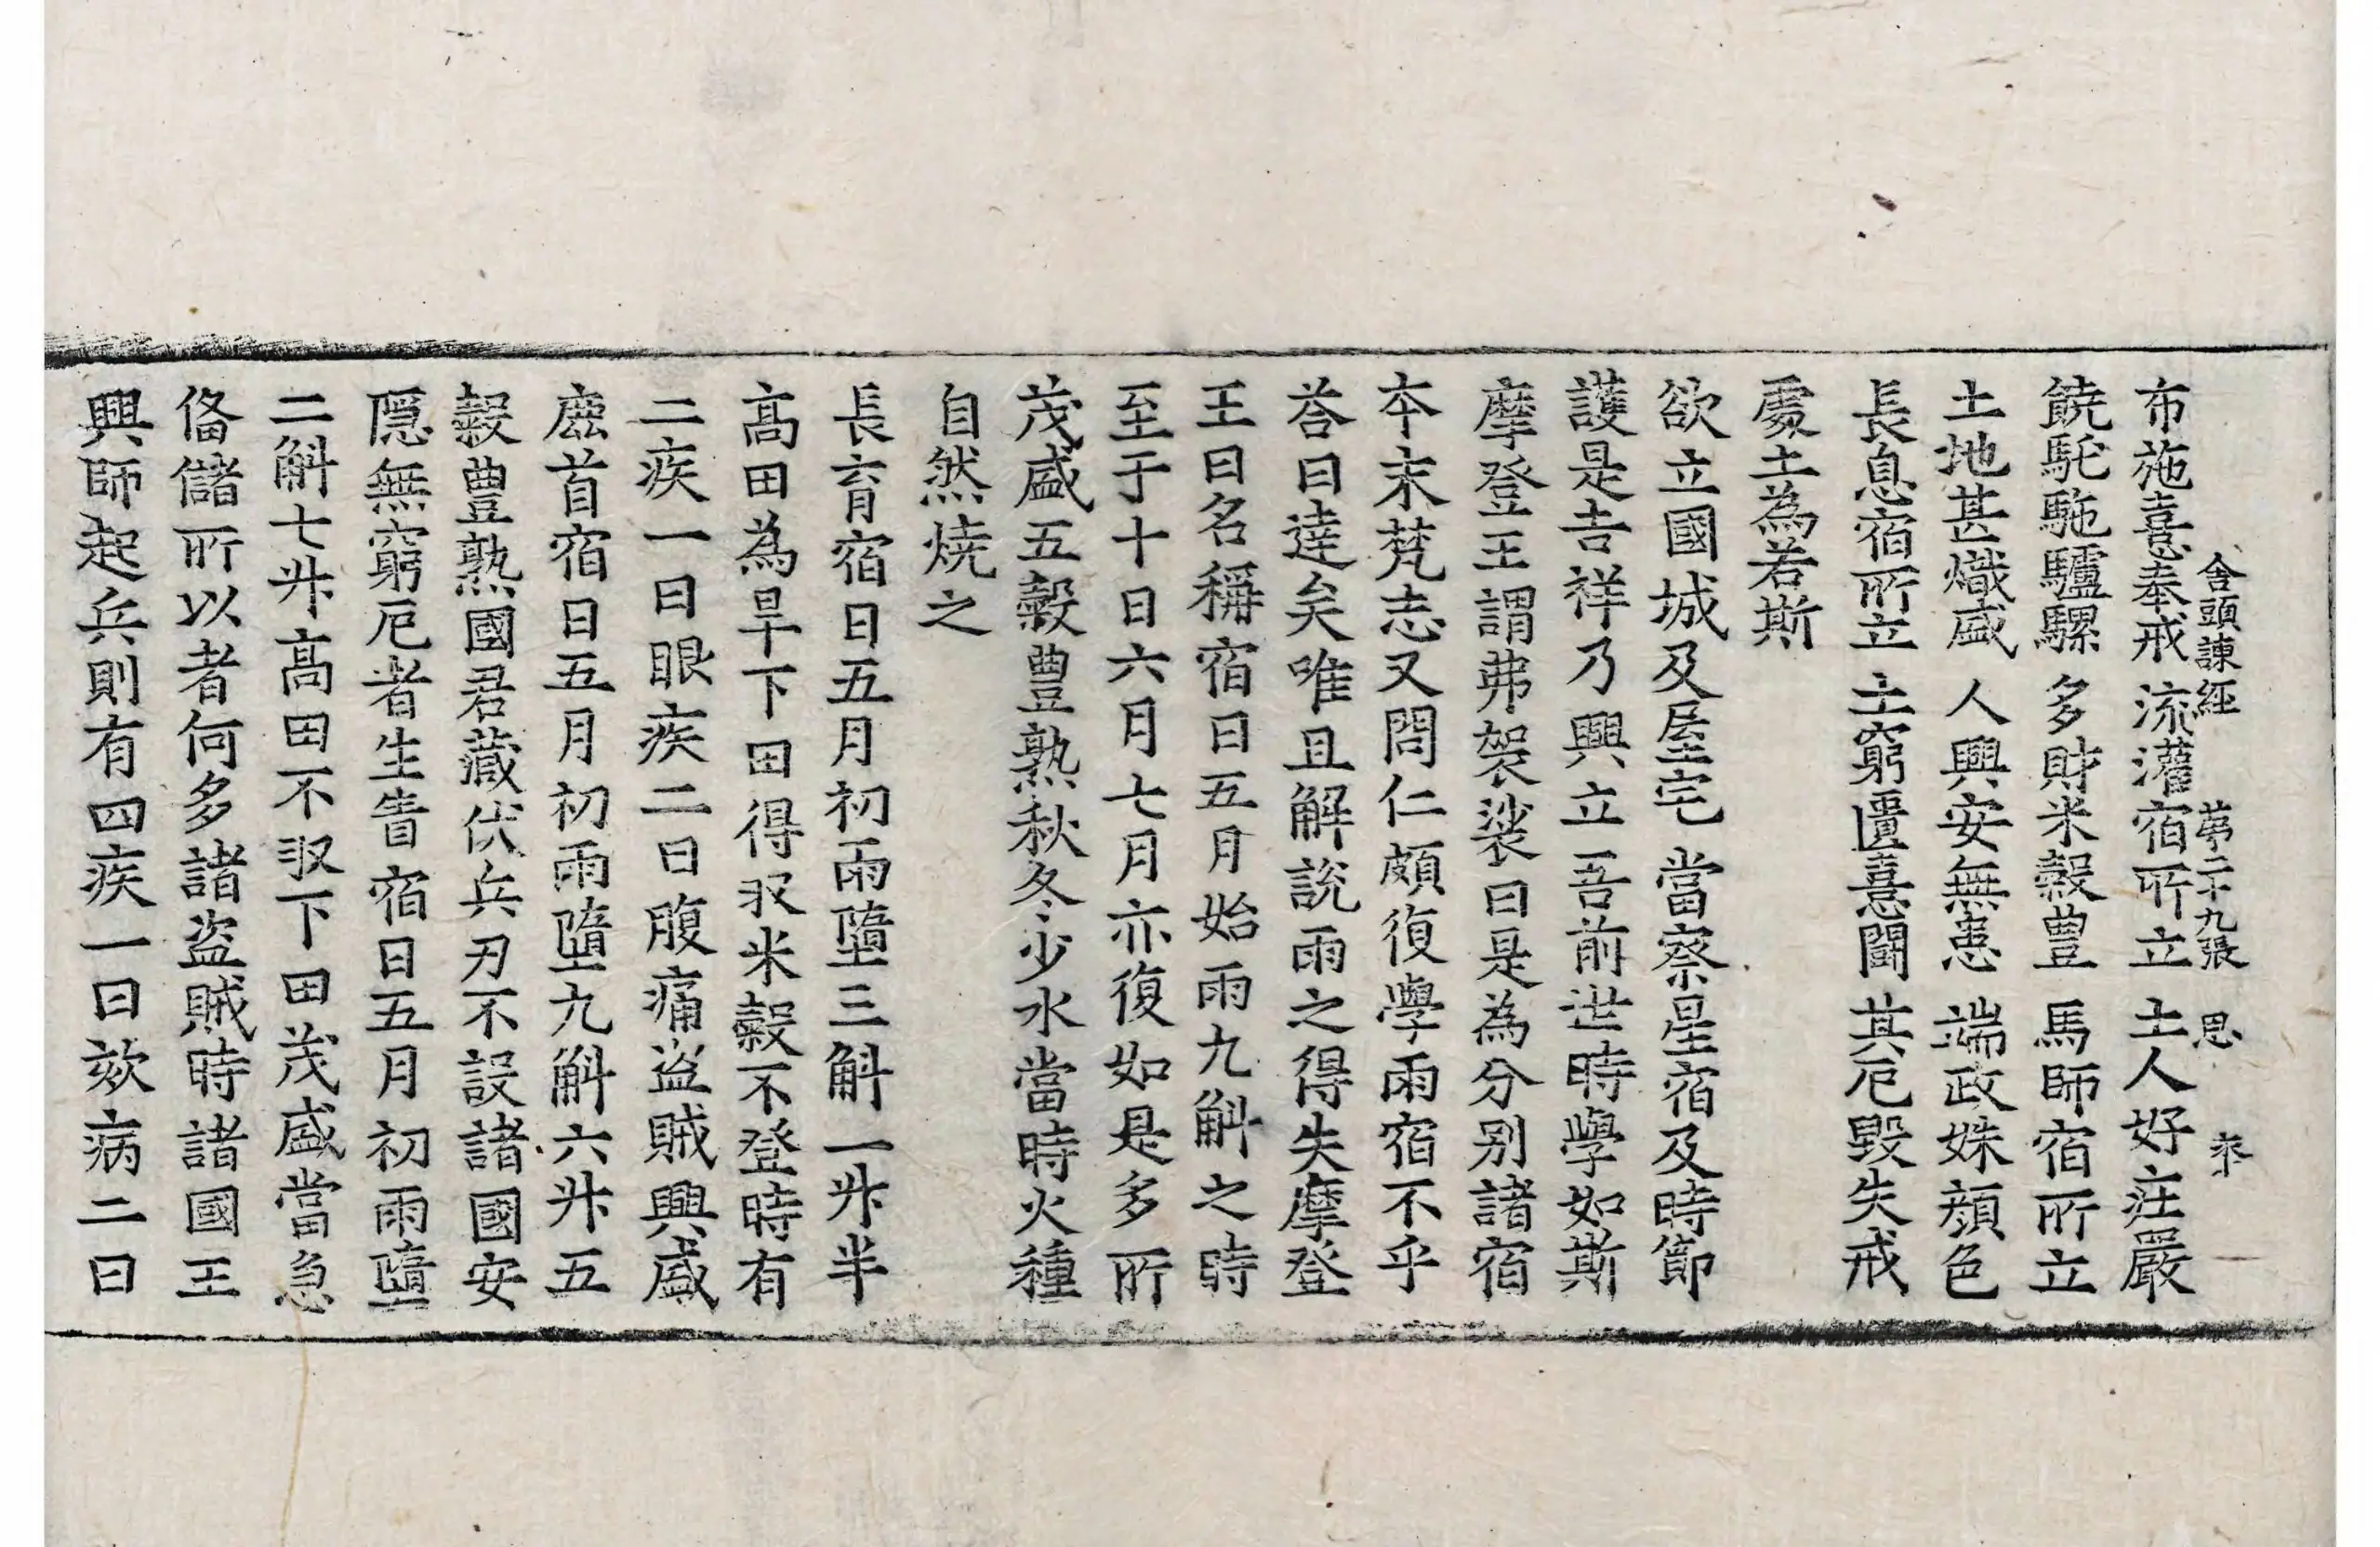 舍頭諫經 第二十九張 恩 
布施憙奉戒 流灌宿所立 土人好莊嚴
饒駝馳驢騾 多財米穀豊 馬師宿所立
土地甚熾盛 人興安無恚 端政姝顔色
長息宿所立 土窮匱憙鬪 其厄毀失戒
處土為若斯
欲立國城及屋宅 當察星宿及時節
護是吉祥乃興立 吾前世時學如斯
摩登王謂弗袈裟曰是為分別諸宿
本末梵志又問仁頗復學雨宿不乎
荅曰達矣唯且解說雨之得失摩登
王曰名稱宿日五月始雨九斛之時
至于十日六月七月亦復如是多所
茂盛五穀豊熟秋冬少水當時火種
自然燒之
長育宿日五月初雨墮三斛一升半
高田為旱下田得收米穀不登時有
二疾一曰眼疾二曰腹痛盜賊興盛
鹿首宿日五月初雨墮九斛六升五
穀豊熟國君藏伏兵刃不設諸國安
隱無窮厄者生眚宿日五月初雨墮
二斛七升高田不収下田茂盛當急
俻儲所以者何多諸盜賊時諸國王
興師起兵則有四疾一曰欬病二曰